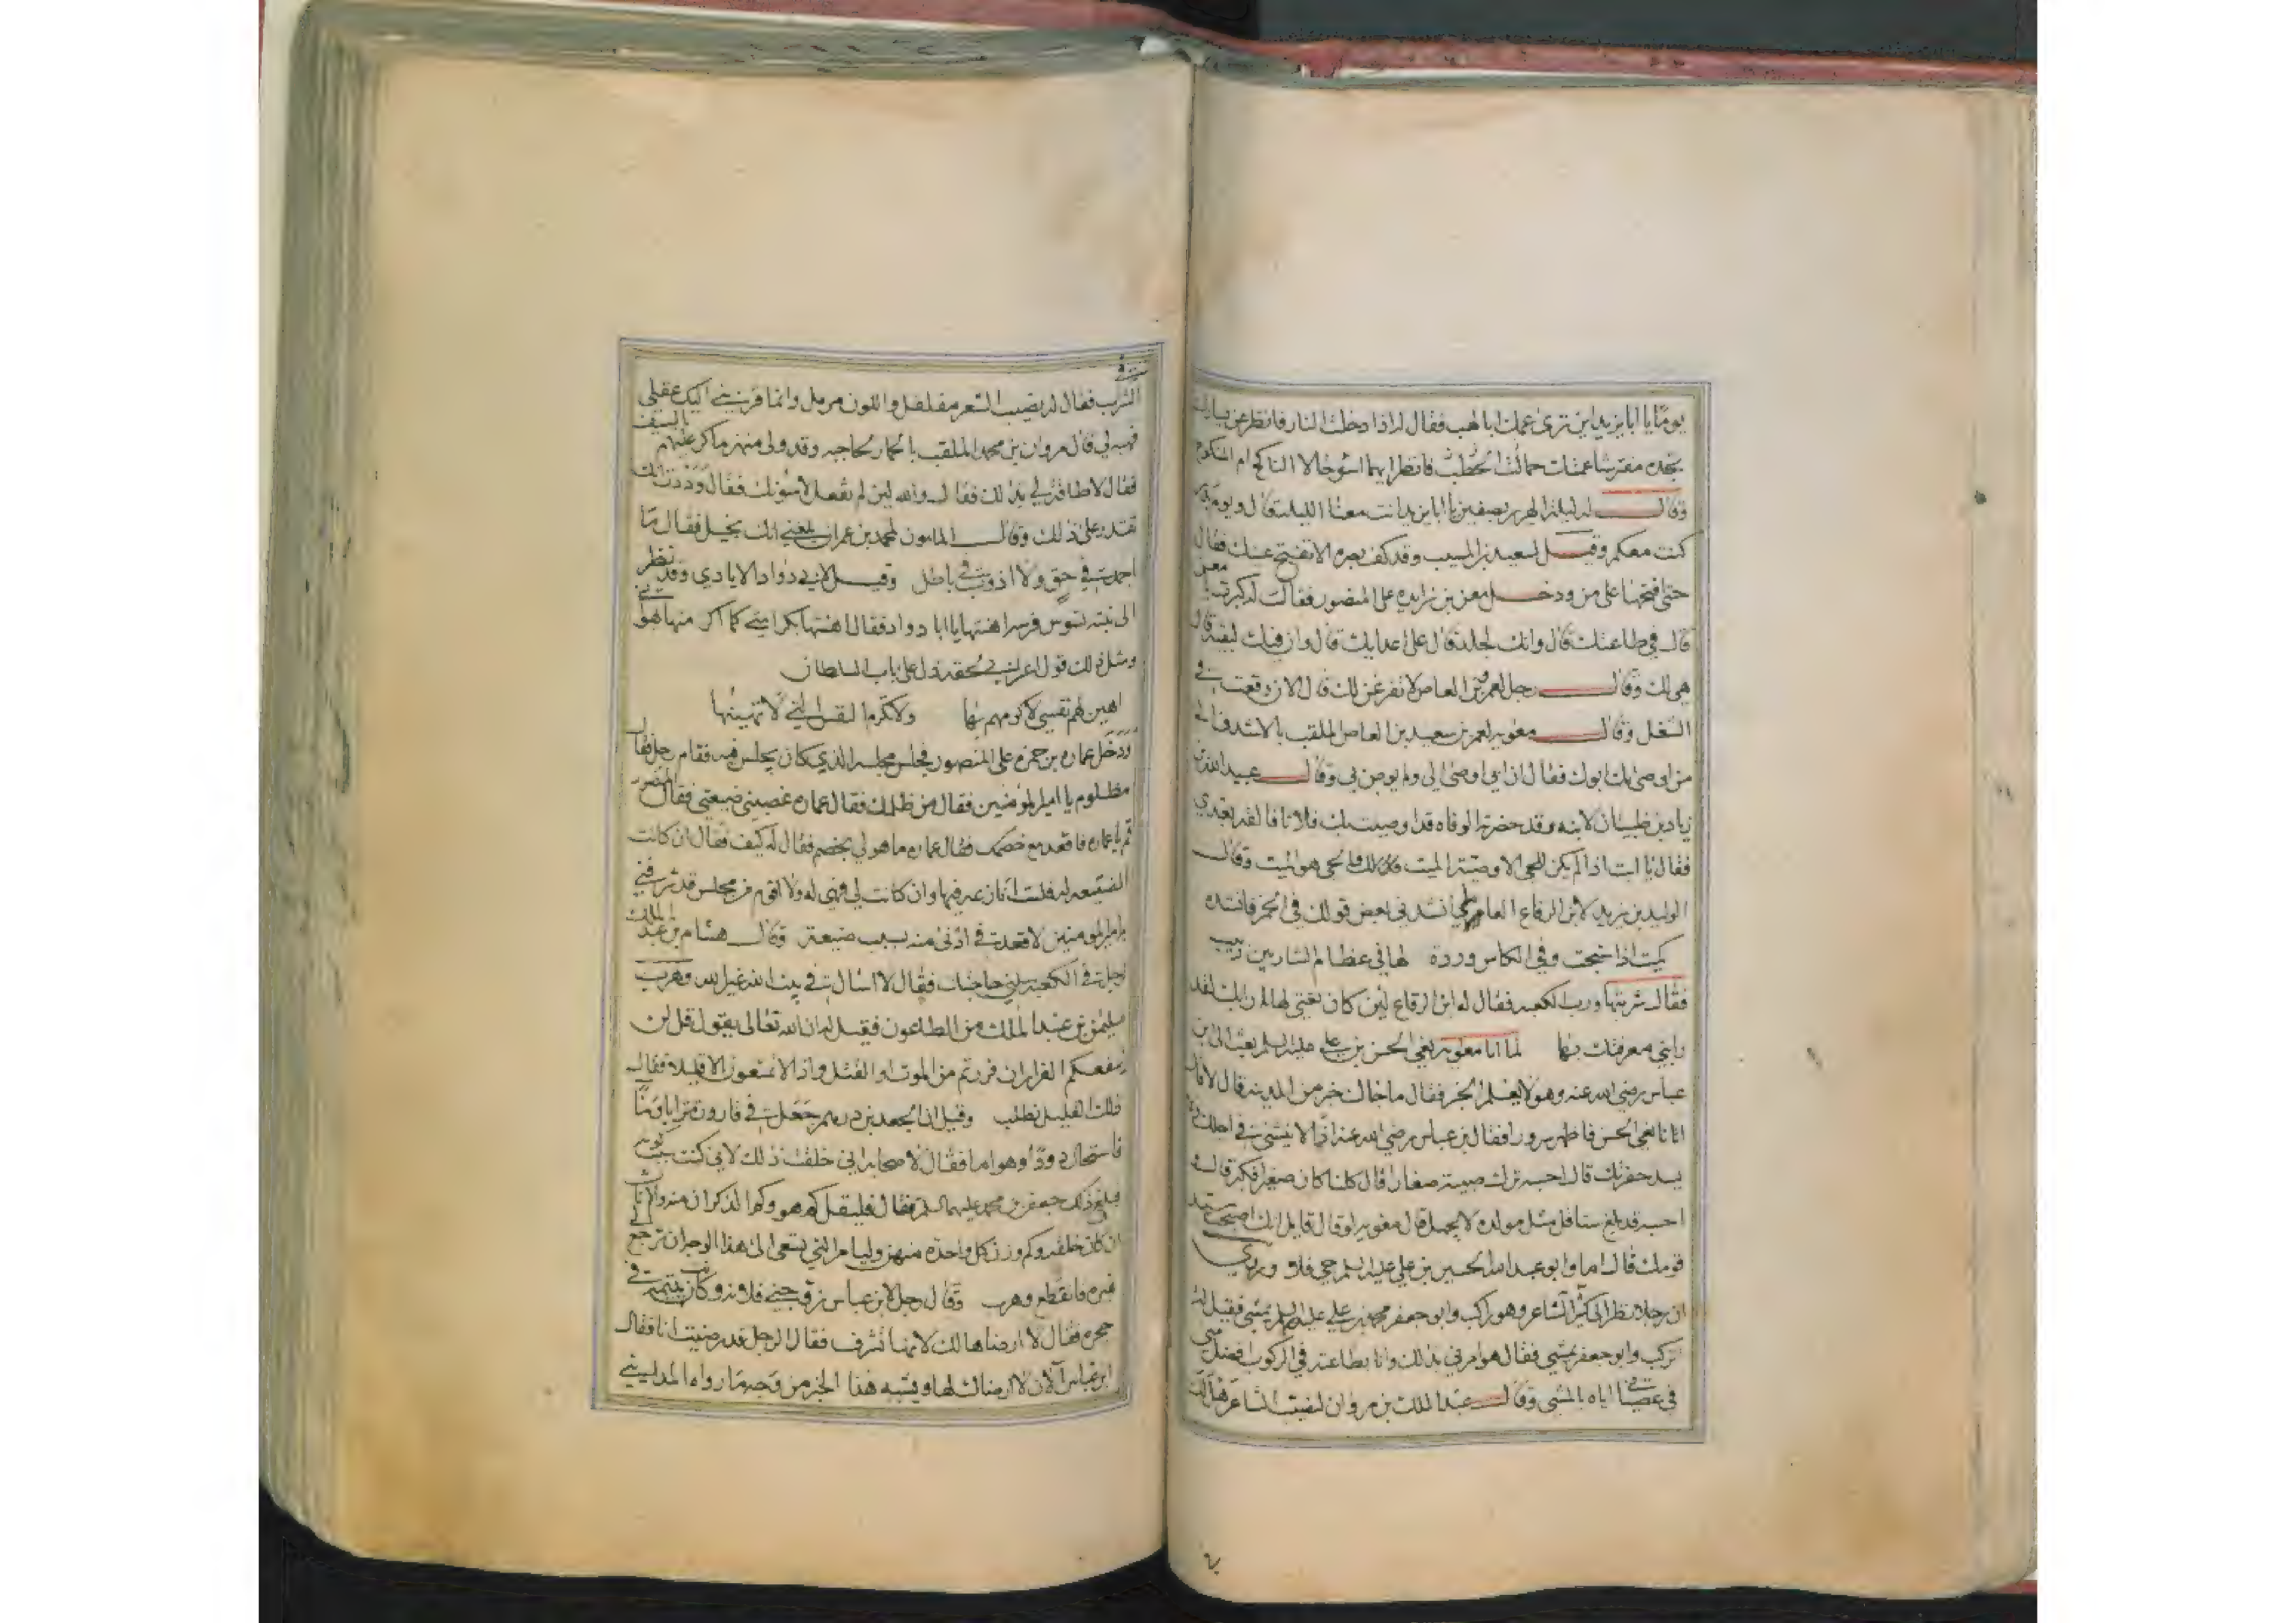 يومًا يا ابا يزيد اين ترى عمك ابا لهب فقال له اذا دخلت النار فانظر عن يسارك
تجده مفترشا عمتك حمالة الحطب فانظر ايهما اسوء حالا الناكح ام المنكوح
وقال له ليلة الهرير بصفين يا ابا يزيد انت معنا الليلة قال ويوم بدر
كنت معكم وقيل لسعيد بن المسيب وقد كف بصره الا تفتح عينك فقال
حتى افتحها على من ودخل معن بن زايده على المنصور فقال له كبرت يا معن
قال في طاعتك قال وانك لجلد قال على اعدايك قال وان فيك لبقية قال
هي لك وقال رجل لعمرو بن العاص لاتفرغن لك قال الان وقعت في
الشغل وقال معويه لعمرو بن سعيد بن العاص الملقب بالاشدق الى
من اوصى بك ابوك فقال ان ابي اوصى الي ولم يوص بي وقال عبيد الله بن
زياد بن ظبيان لابنه وقد حضرته الوفاه قد اوصيت بك فلانا فالقه بعدي
فقال يا ابت اذا لم يكن للحي الا وصية الميت فالحي هو الميت وقال
الوليد بن يزيد لابن الرقاع العاملي انشدني بعض قولك في الخمر فانشده
كميت اذا شجت وفي الكاس وردة لها في عظام الشاربين دبيب
فقال شربتها ورب الكعبه فقال له ابن الرقاع لئن كان نعتي لها رابك لقد
رابني معرفتك بها لما اتا معويه نعي الحسن بن علي عليه السلم بعث الى ابن
عباس رضي الله عنه وهو لا يعلم الخبر فقال ما جاك خبر من المدينه قال لا قال
اتانا نعي الحسن فاظهر سرورا فقال بن عباس رضي الله عنه اذًا لا ينسئ في اجلك ولا
يسد حفرتك قال احسبه ترك صبية صغارا قال كلنا كان صغيرا فكبر قال و
احسبه قد بلغ سنا قال مثل مولده لا يجهل قال معويه لو قال قايل انك اصبحت سيد
قومك قال اما وابو عبد الله الحسين بن علي عليه السلم حي فلا وروي
ان رجلا نظر الى كثير الشاعر وهو راكب وابو جعفر محمد بن علي عليه السلم يمشي فقيل له
تركب وابو جعفر يمشي فقال هو امرني بذلك وانا بطاعته في الركوب افضل مني
في عصياني اياه بالمشي وقال عبد الملك بن مروان
الشرب فقال له نصيب الشعر مفلفل واللون مرمل وانما قربني اليك عقلي
فهبه لي قال مروان بن محمد الملقب بالحمار لحاجبه وقد ولى منهزما كر عليهم بالسيف
فقال لا طاقة لي بذلك فقال والله لين لم تفعل لاسونك فقال وددت انك
تقدر على ذلك وقال المامون لمحمد بن عمران بلغني انك بخيل فقال ما
اجمدت في حق ولا اذوب في باطل وقيل لابي دواد الايادي وقد نظر
الى بنته تسوس فرسه اهنتها يا ابا دواد فقال اهنتها بكرامتي كما اكرمتها بهواني
ومثل ذلك قول اعرابي لحقه ذل على باب السلطان
اهين لهم نفسي لاكرمهم بها ولا تكرم النفس التي لا تهينها
ودخل عماره بن حمزه على المنصور فجلس مجلسه الذي كان يجلس فيه فقام رجل فقال
مظلوم يا امير المؤمنين فقال من ظلمك فقال عماره غصبني ضيعتي فقال المنصور
قم يا عماره فاقعد مع خصمك فقال عماره ما هو لي بخصم فقال له كيف فقال ان كانت
الضيعه له فلست انازعه فيها وان كانت لي فهي له ولا اقوم من مجلس قد شرفني
به امير المؤمنين لاقعد في ادنى منه بسبب ضيعة وقال هشام بن عبد الملك
لرجل في الكعبه سلني حاجتك فقال لا اسال في بيت الله غير الله وهرب
سليمن بن عبد الملك من الطاعون فقيل له ان الله تعالى يقول قل لن
ينفعكم الفرار ان فررتم من الموت او القتل واذا لا تمتعون الا قليلا فقال
ذلك القليل نطلب وقيل ان الجعد بن درهم جعل في قارورة ترابا وماءً
فاستحال دودًا وهواما فقال لاصحابه اني خلقت ذلك لاني كنت سبب كونه
فبلغ ذلك جعفر بن محمد عليهما السلم فقال فليقل كم هو وكم الذكران منه والاناث
ان كان خلقه وكم وزن كل واحدة منهن وليامر التي تسعى الى هذا الوجه ان ترجع الى
غيره فانقطع وهرب وقال رجل لابن عباس زوجني فلانه وكانت يتيمة في
حجره فقال لا ارضاها لك لانها تشرف فقال الرجل قد رضيت انا فقال
ابن عباس الآن لا ارضاك لها ويشبه هذا الخبر من وجه ما رواه المدايني